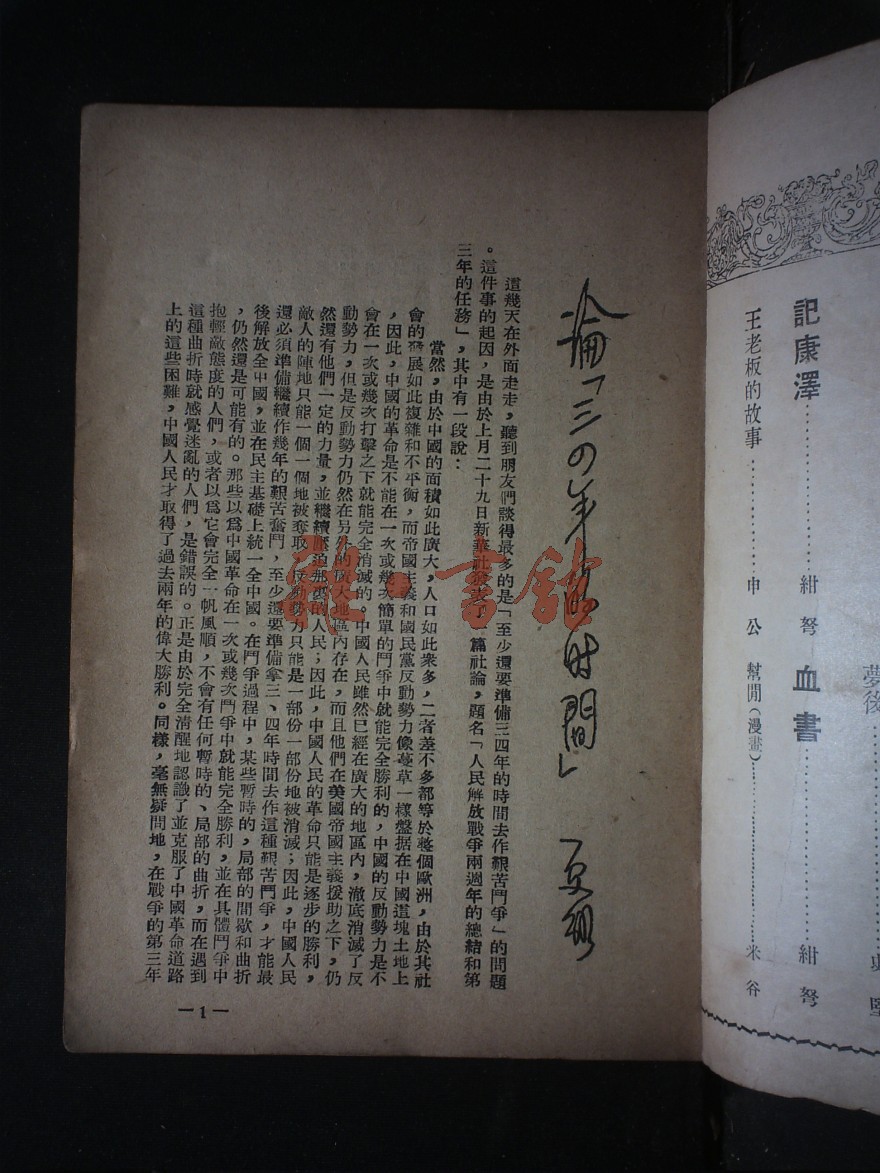 論「三四年的時間」 夏衍
這幾天在外面走走，聽到朋友們談得最多的是「至少還要準備三四年的時間去作艱苦鬥爭」的問題
。這件事的起因，是由於上月二十九日新華社發表了一篇社論，題名「人民解放戰爭兩週年的總結和第
三年的任務」，其中有一段說：
當然，由於中國的面積如此廣大，人口如此衆多，二者差不多都等於整個歐洲，由於其社
會的發展如此複雜和不平衡，而帝國主義和國民黨反動勢力像蔓草一樣盤据在中國這塊土地上
，因此，中國的革命是不能在一次或幾次簡單的鬥爭中就能完全勝利的，中國的反動勢力是不
會在一次或幾次打擊之下就能完全消滅的。中國人民雖然已經在廣大的地區內，澈底消滅了反
動勢力，但是反動勢力仍然在另外的廣大地區內存在，而且他們在美國帝國主義援助之下，仍
然還有他們一定的力量，並繼續壓迫那裏的人民；因此，中國人民的革命只能是逐步的勝利，
敵人的陣地只能一個一個地被奪取，反動勢力只能是一部份一部份地被消滅；因此，中國人民
還必須準備繼續作幾年的艱苦奮鬥，至少還要準備拿三、四年時間去作這種艱苦鬥爭，才能最
後解放全中國，並在民主基礎上統一全中國。在鬥爭過程中，某些暫時的，局部的間歇和曲折
，仍然還是可能有的。那些以爲中國革命在一次或幾次鬥爭中就能完全勝利，並在具體鬥爭中
抱輕敵態度的人們，或者以爲它會完全一帆風順，不會有任何暫時的、局部的曲折，而在遇到
這種曲折時就感覺迷亂的人們，是錯誤的。正是由於完全清醒地認識了並克服了中國革命道路
上的這些困難，中國人民才取得了過去兩年的偉大勝利。同樣，毫無疑問地，在戰爭的第三年
—1—
夢後
記康澤…………紺弩
血書…………紺弩
王老板的故事…………申公
幫閒（漫畫）…………米谷